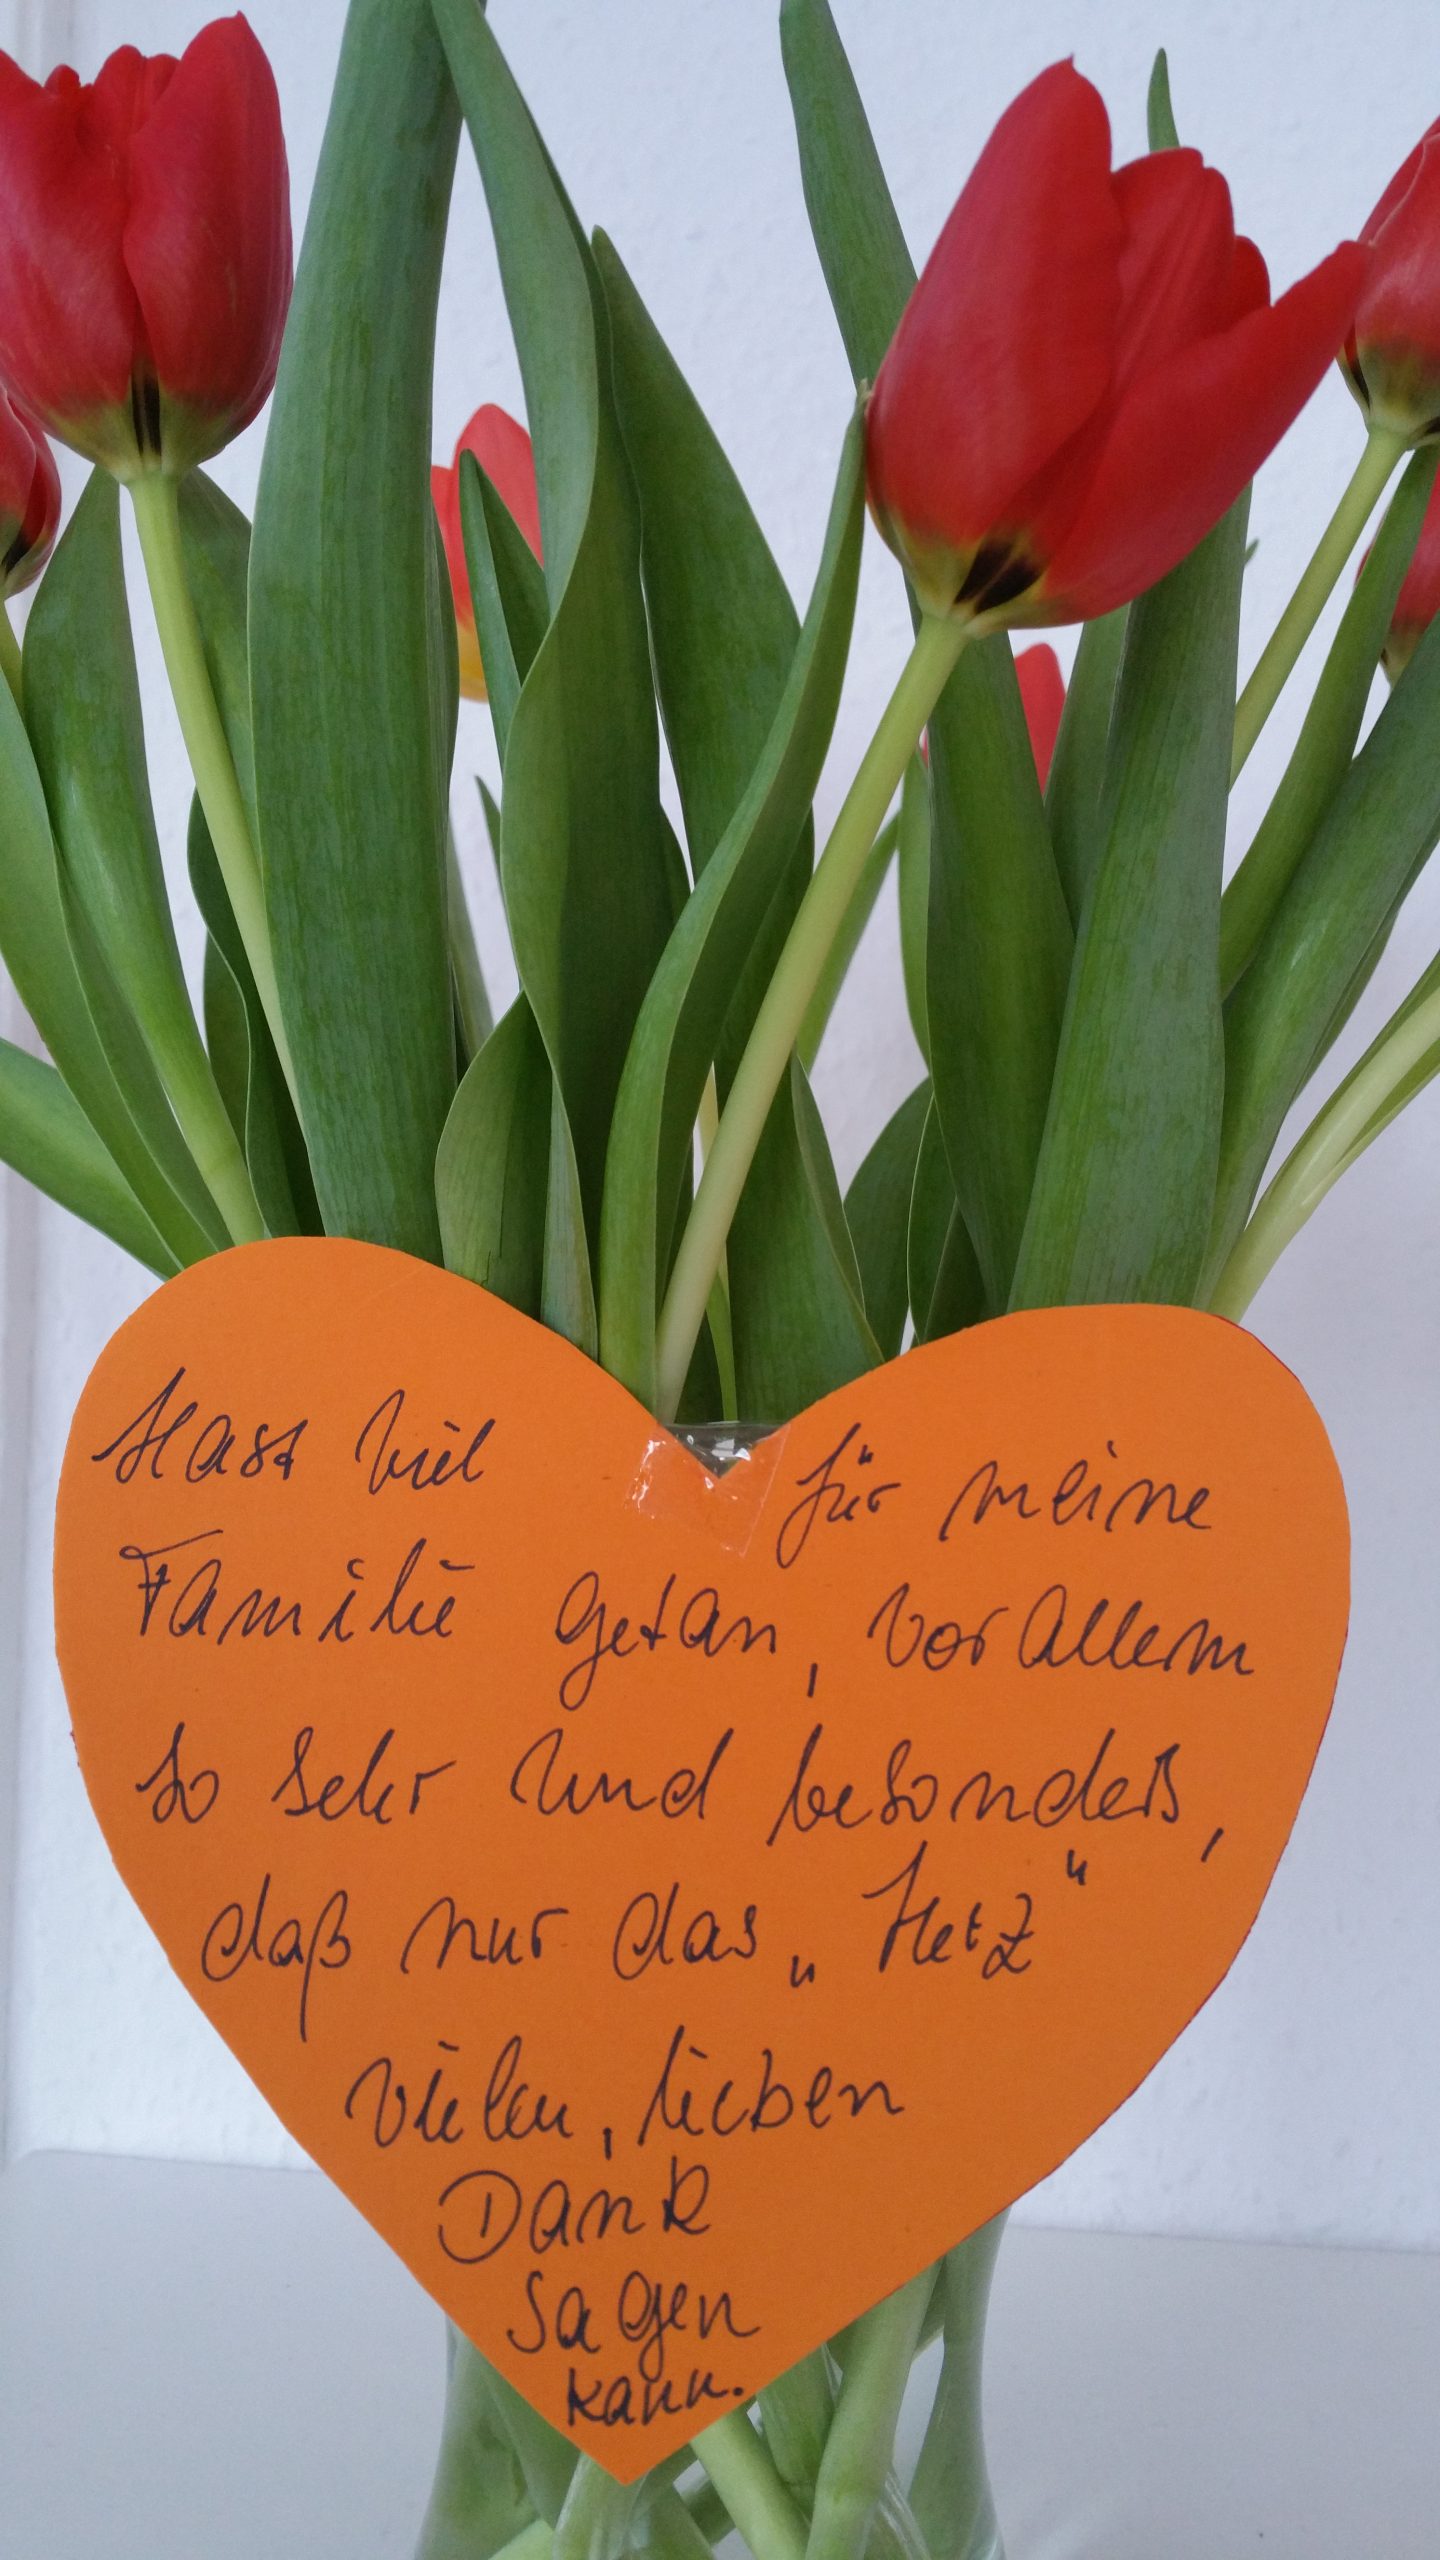 Hast viel für meine
Familie getan, vor allem
so sehr und besonders,
daß nur das „Herz“
vielen, lieben
Dank
sagen
kann.